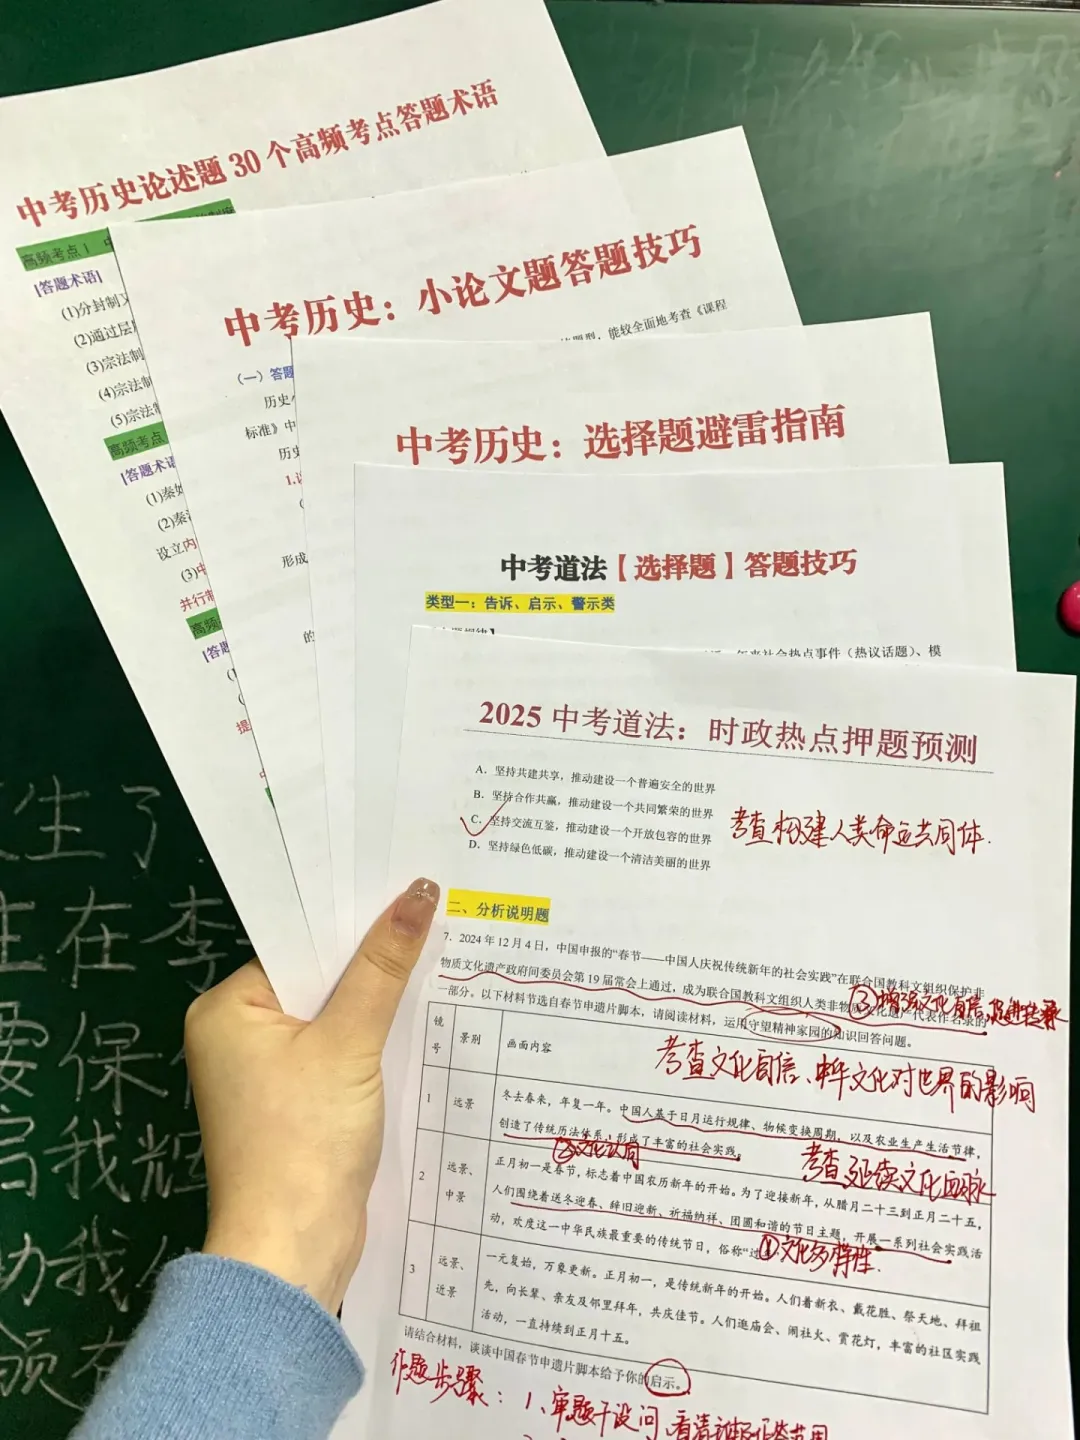 中考历史论述题 30 个高频考点答题术语
高频考点 1
[答题术语]
(1)分封制
(2)通过层
(3)宗法制
(4)宗法制
(5)宗法
高频考点
[答题术语
(1)秦
(2)秦
设立内
(3)中
并行
高频
[答题
提
中考历史：小论文题答题技巧
题型，能较全面地考查《课程
（一）答题
历史
标准》中
历史
1.
形成
的
中考历史：选择题避雷指南
中考道法【选择题】答题技巧
类型一：告诉、启示、警示类
年来社会热点事件（热议话题）、模
2025 中考道法：时政热点押题预测
A．坚持共建共享，推动建设一个普遍安全的世界
B．坚持合作共赢，推动建设一个共同繁荣的世界
C．坚持交流互鉴，推动建设一个开放包容的世界
D．坚持绿色低碳，推动建设一个清洁美丽的世界
考查构建人类命运共同体.
二、分析说明题
7．2024 年 12 月 4 日，中国申报的“春节——中国人庆祝传统新年的社会实践”在联合国教科文组织保护非
物质文化遗产政府间委员会第 19 届常会上通过，成为联合国教科文组织人类非物质文化遗产代表作名录的
③增强文化自信,促进传承
一部分。以下材料节选自春节申遗片脚本，请阅读材料，运用守望精神家园的知识回答问题。
考查文化自信、中华文化对世界的影响
镜号 景别 画面内容
1 远景 冬去春来，年复一年。中国人基于日月运行规律、物候变换周期，以及农业生产生活节律，
创造了传统历法体系，形成了丰富的社会实践。
②文化认同
考查延续文化血脉
2 远景、中景 正月初一是春节，标志着中国农历新年的开始。为了迎接新年，从腊月二十三到正月二十五，
人们围绕着送冬迎春、辞旧迎新、祈福纳祥、团圆和谐的节日主题，开展一系列社会实践活
动，欢度这一中华民族最重要的传统节日，俗称“过
①文化多样性.
3 远景、近景 一元复始，万象更新。正月初一，是传统新年的开始。人们着新衣、戴花胜、祭天地、拜祖
先，向长辈、亲友及邻里拜年，共庆佳节。人们逛庙会、闹社火、赏花灯，丰富的社区实践
活动，一直持续到正月十五。
请结合材料，谈谈中国春节申遗片脚本给予你的启示。
作题步骤：1、审题干设问，看清
生了.
在李
要保
我
助我
颂